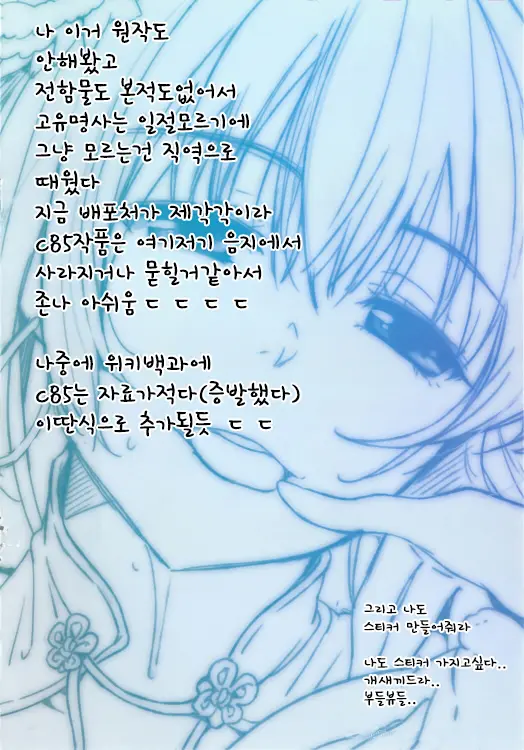 나 이거 원작도
안해봤고
전함물도 본적도없어서
고유명사는 일절모르기에
그냥 모르는건 직역으로
때웠다
지금 배포처가 제각각이라
c85작품은 여기저기 음지에서
사라지거나 묻힐거같아서
존나 아쉬움 ㄷ ㄷ ㄷ ㄷ
나중에 위키백과에
c85는 자료가적다(증발했다)
이딴식으로 추가될듯 ㄷ ㄷ
그리고 나도
스티커 만들어줘라
나도 스티커 가지고싶다..
개새끼드라..
부들뷰들..